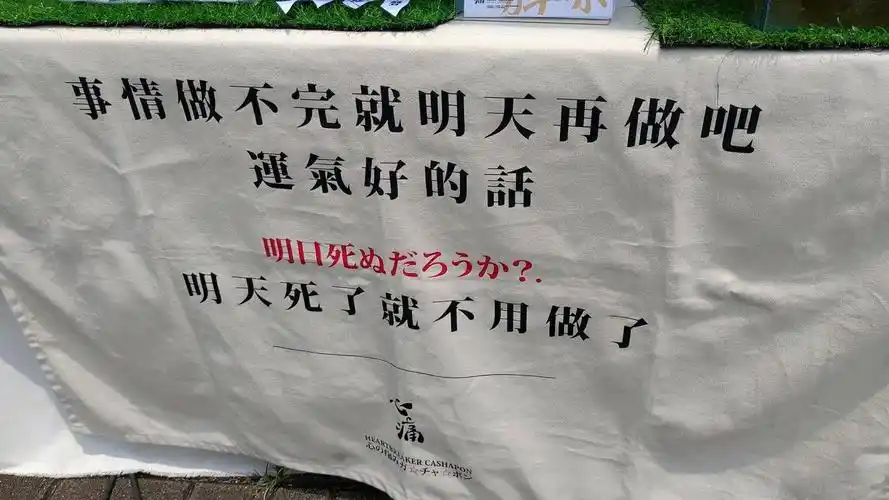 事情做不完就明天再做吧
運氣好的話
明日死ぬだろうか?.
明天死了就不用做了
心痛
HEARTBREAKER CASHAPON
心の痛みガ☆チャ☆ポン